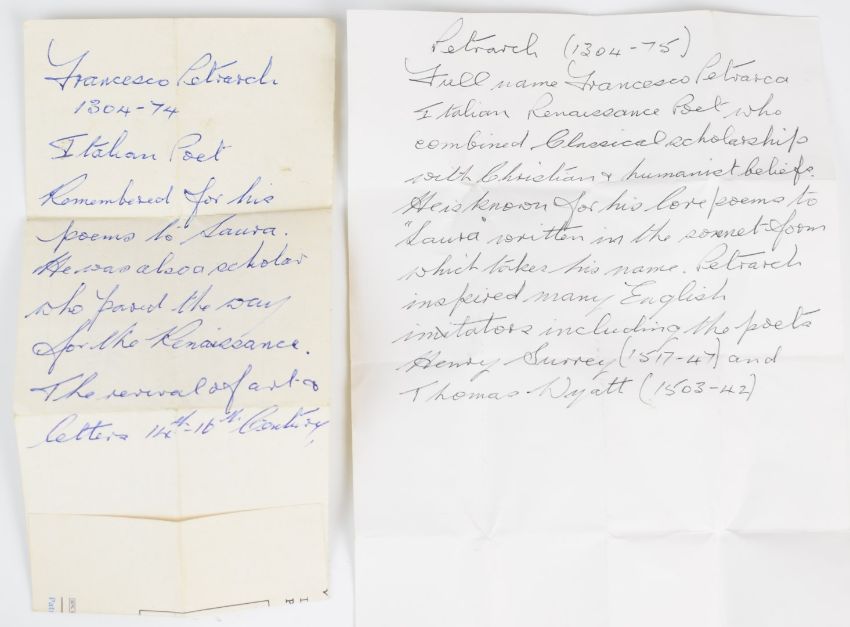 Francesco Petrarch
1304-74
Italian Poet
Remembered for his
poems to Laura.
He was also a scholar
who paved the way
for the Renaissance.
The revival of art &
letters 14th-16th Century
Petrarch (1304-75)
Full name Francesco Petrarca
Italian Renaissance Poet who
combined Classical scholarship
with Christian & humanist beliefs.
He is known for his love poems to
"Laura" written in the sonnet form
which takes his name. Petrarch
inspired many English
imitators including the poets
Henry Surrey (1517-47) and
Thomas Wyatt (1503-42)